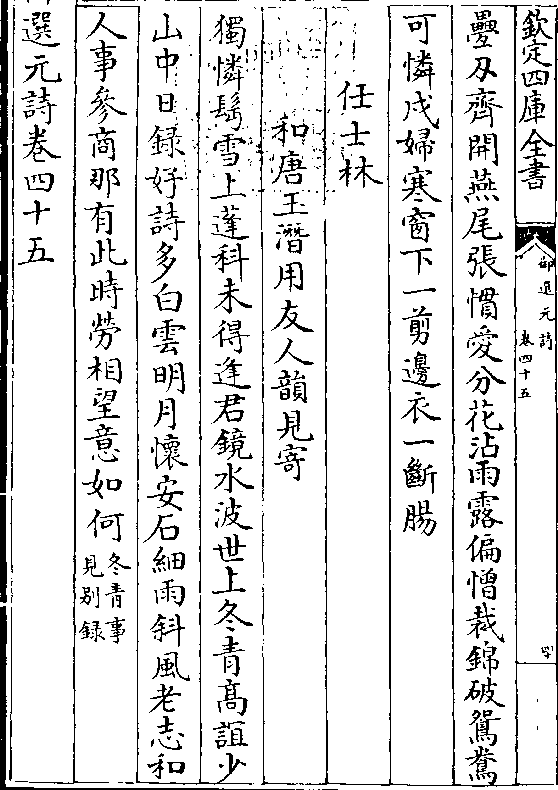 欽定四庫全書
御選元詩
卷四十五
罍刄齊開燕尾張慣愛分花沾雨露偏憎裁錦破鴛鴦
可憐戍婦寒窗下一剪邊衣一斷腸
任士林
和唐玉潛用友人韻見寄
獨憐髩雪上蓬科未得逢君鏡水波世上冬青高誼少
山中日錄好詩多白雲明月懷安石細雨斜風老志和
人事參商那有此時勞相望意如何
冬青事
見别錄
選元詩卷四十五